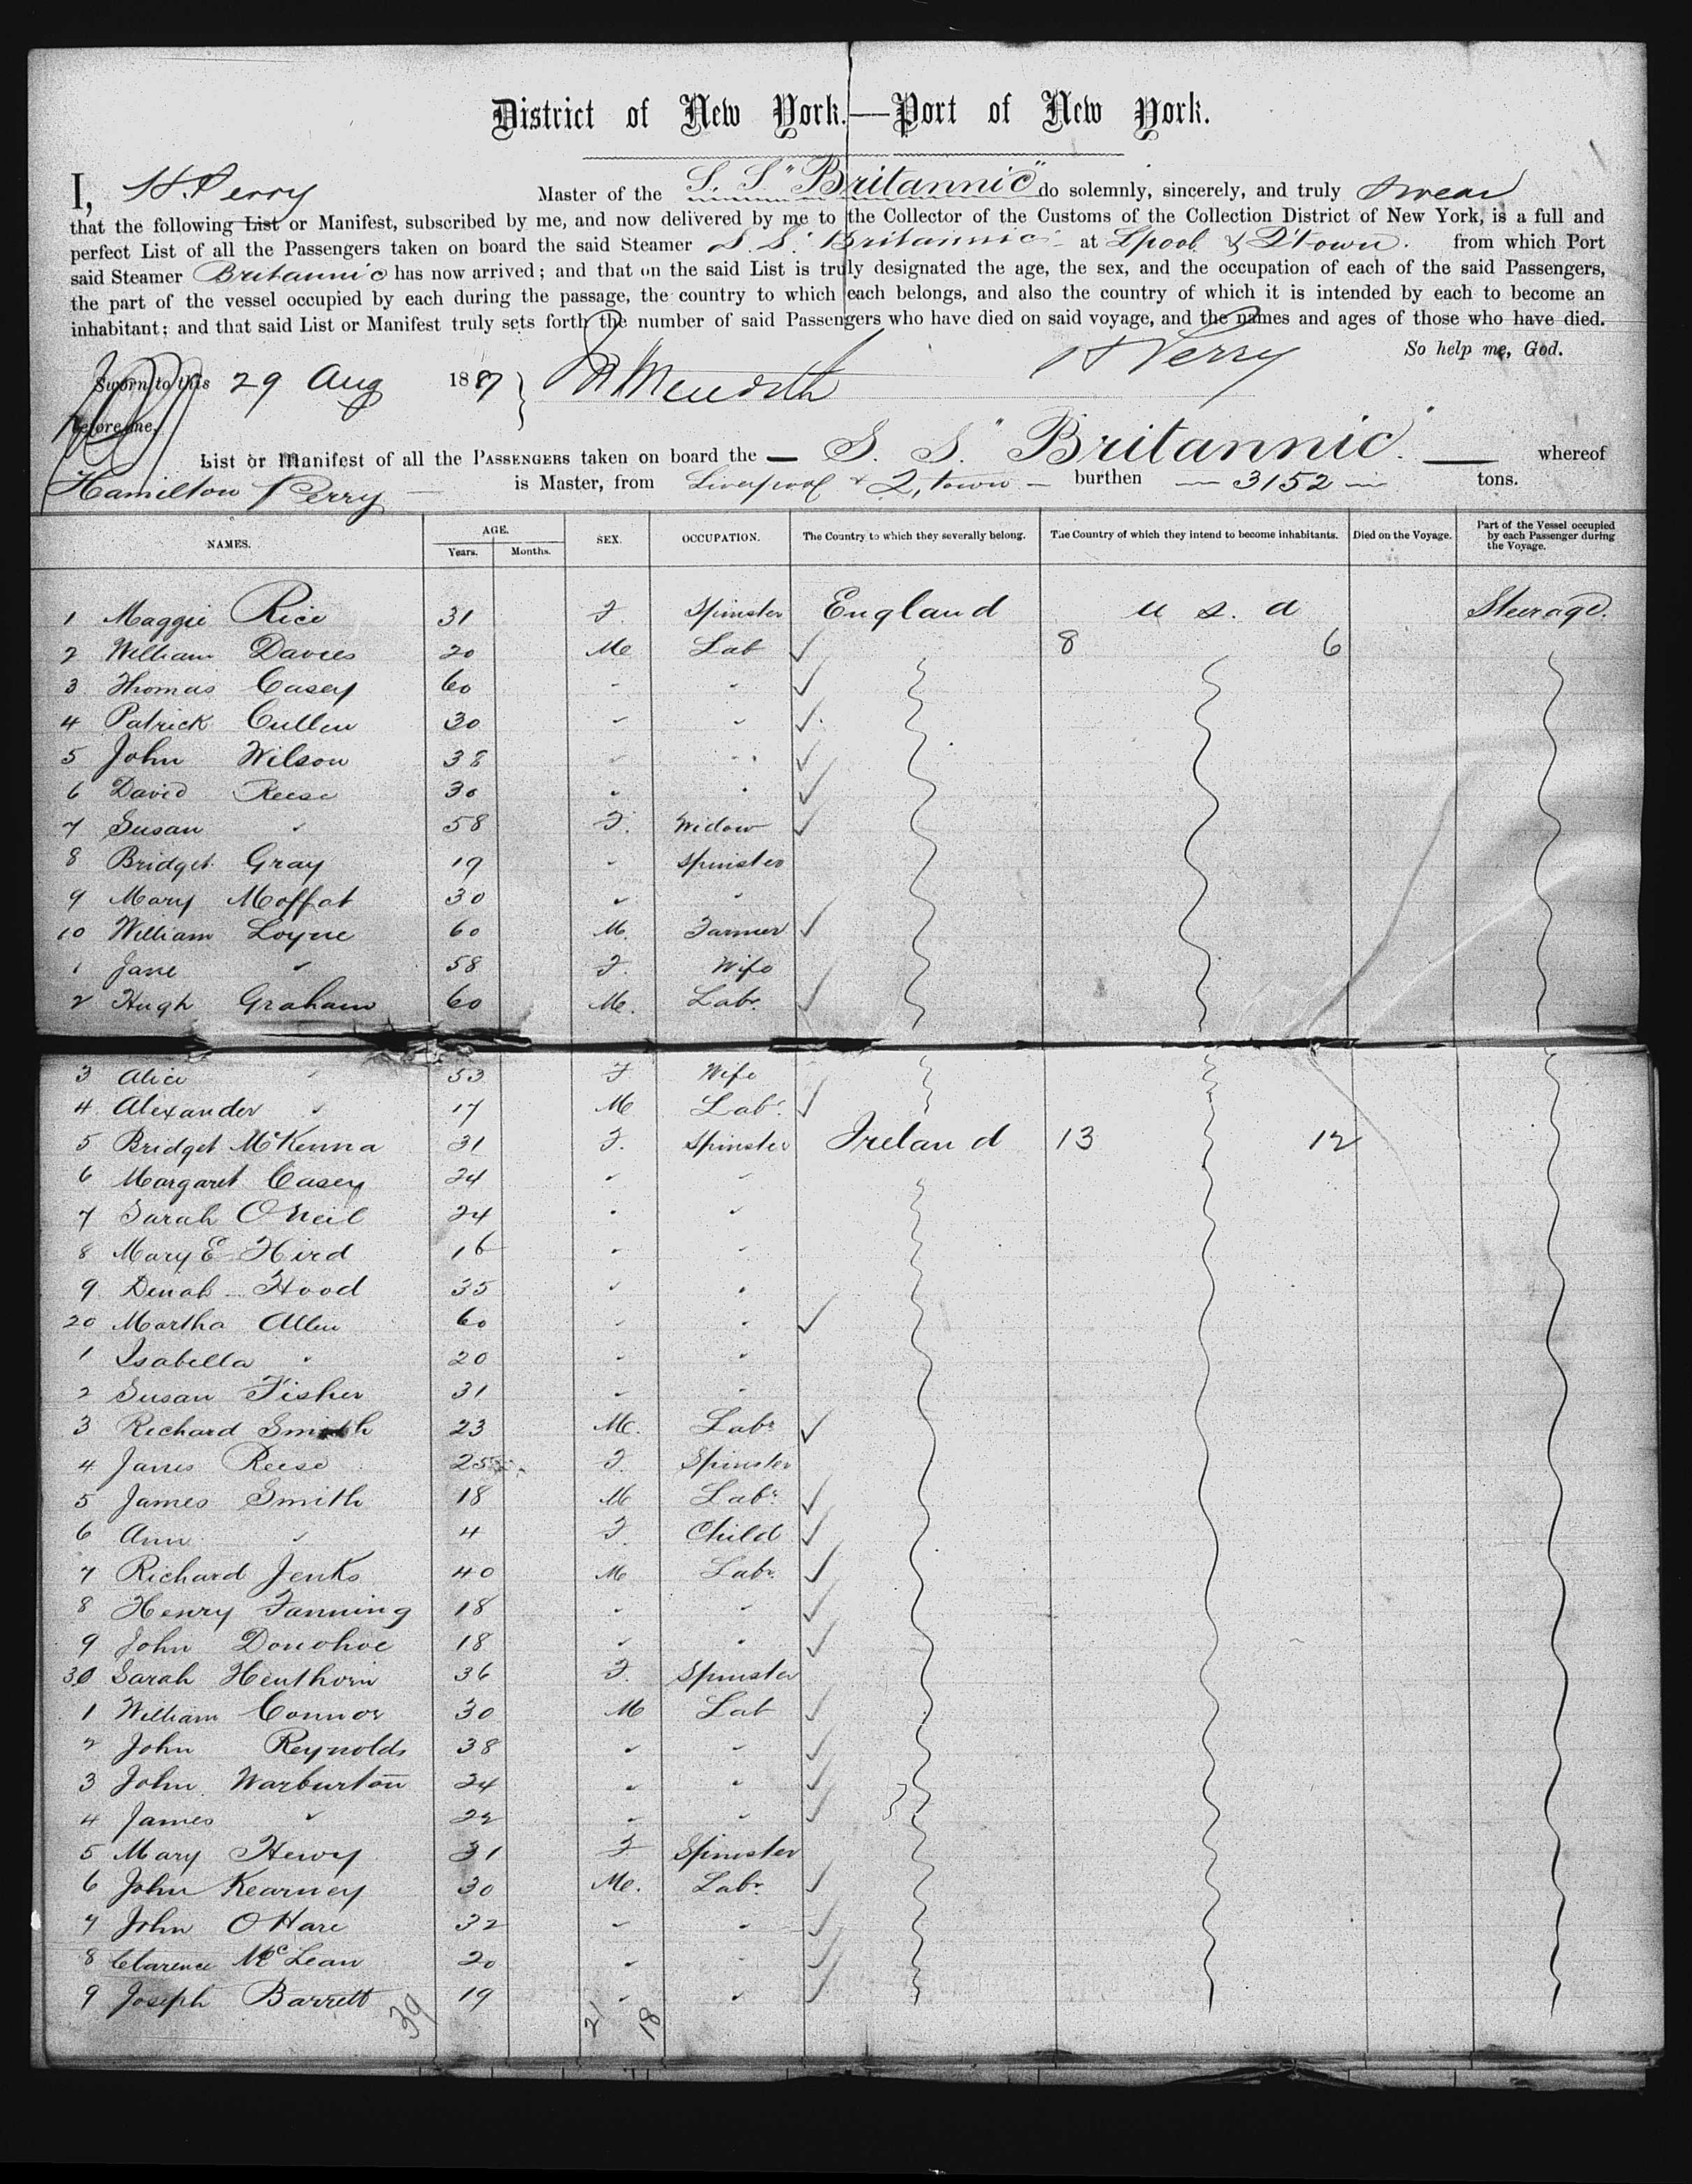 District of New York.—Port of New York.
I, H Perry Master of the S. S. "Britannic" do solemnly, sincerely, and truly swear
that the following List or Manifest, subscribed by me, and now delivered by me to the Collector of the Customs of the Collection District of New York, is a full and
perfect List of all the Passengers taken on board the said Steamer S. S. "Britannic" at Lpool & Q'town. from which Port
said Steamer Britannic has now arrived; and that on the said List is truly designated the age, the sex, and the occupation of each of the said Passengers,
the part of the vessel occupied by each during the passage, the country to which each belongs, and also the country of which it is intended by each to become an
inhabitant; and that said List or Manifest truly sets forth the number of said Passengers who have died on said voyage, and the names and ages of those who have died.
So help me, God.
Sworn to this 29 Aug 1887 } H Perry
before me,
List or Manifest of all the PASSENGERS taken on board the — S. S. "Britannic" — whereof
Hamilton Perry — is Master, from Liverpool & Q, town — burthen — 3152 — tons.
NAMES. AGE. SEX. OCCUPATION. The Country to which they severally belong. The Country of which they intend to become inhabitants. Died on the Voyage. Part of the Vessel occupied by each Passenger during the Voyage.
Years. Months.
1 Maggie Rice 31 F. Spinster England U S. A Steerage.
2 William Davies 20 M Lab ✓ 8 6
3 Thomas Casey 60 " " ✓
4 Patrick Cullen 30 " " ✓
5 John Wilson 38 " " ✓
6 David Reese 30 " " ✓
7 Susan " 58 F. Widow ✓
8 Bridget Gray 19 " Spinster
9 Mary Moffat 30 " "
10 William Loyne 60 M. Farmer ✓
1 Jane " 58 F. Wife
2 Hugh Graham 60 M. Labr. ✓
3 Alice " 53 F Wife
4 Alexander " 17 M Labr. ✓
5 Bridget McKenna 31 F. Spinster Ireland 13 12
6 Margaret Casey 24 " "
7 Sarah O Neil 24 " "
8 Mary E Hird 16 " "
9 Dinah Hood 35 " "
20 Martha Allen 60 " " ✓
1 Isabella " 20 " "
2 Susan Fisher 31 " "
3 Richard Smith 23 M. Labr ✓
4 Janes Reese 25 F. Spinster
5 James Smith 18 M Labr. ✓
6 Ann " 4 F. Child ✓
7 Richard Jenks 40 M Labr. ✓
8 Henry Fanning 18 " " ✓
9 John Donohoe 18 " " ✓
30 Sarah Henthorn 36 F. Spinster
1 William Connor 30 M Lab ✓
2 John Reynolds 38 " " ✓
3 John Warburton 24 " " ✓
4 James " 22 " " ✓
5 Mary 31 F Spinster
6 John Kearney 30 M. Labr. ✓
7 John O Hare 32 " " ✓
8 Clarence McLean 20 " " ✓
9 Joseph Barrett 19 " " ✓
39 21 18